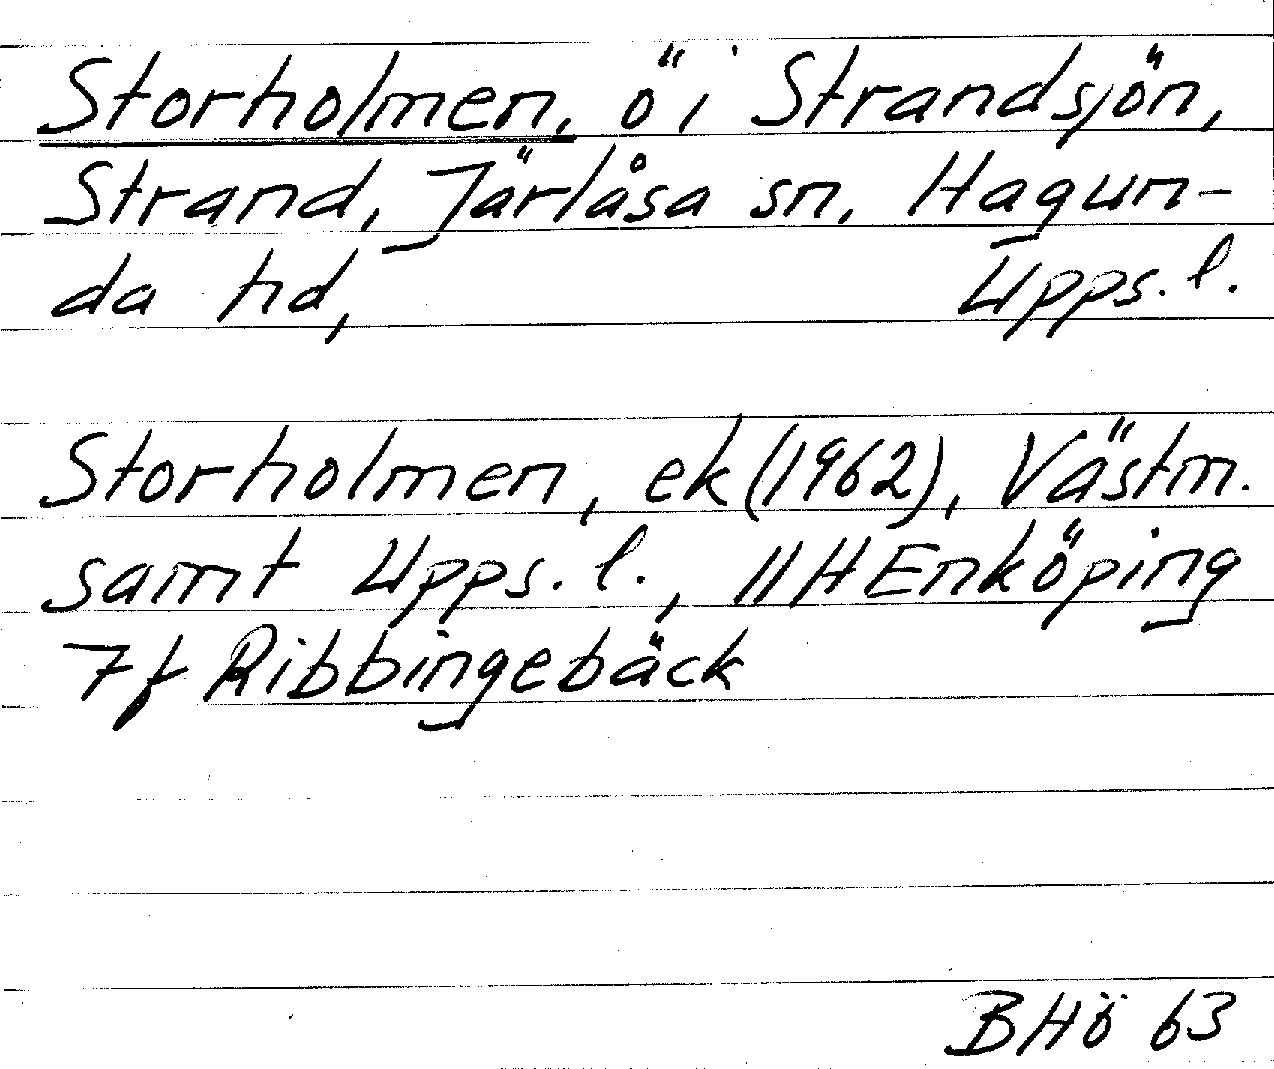 Storholmen, ö i Strandsjön,
Strand, Järlåsa sn, Hagun-
da hd, Upps. l.
Storholmen, ek (1962), Västm.
samt Upps. l., 11H Enköping
7f Ribbingebäck
BHö 63